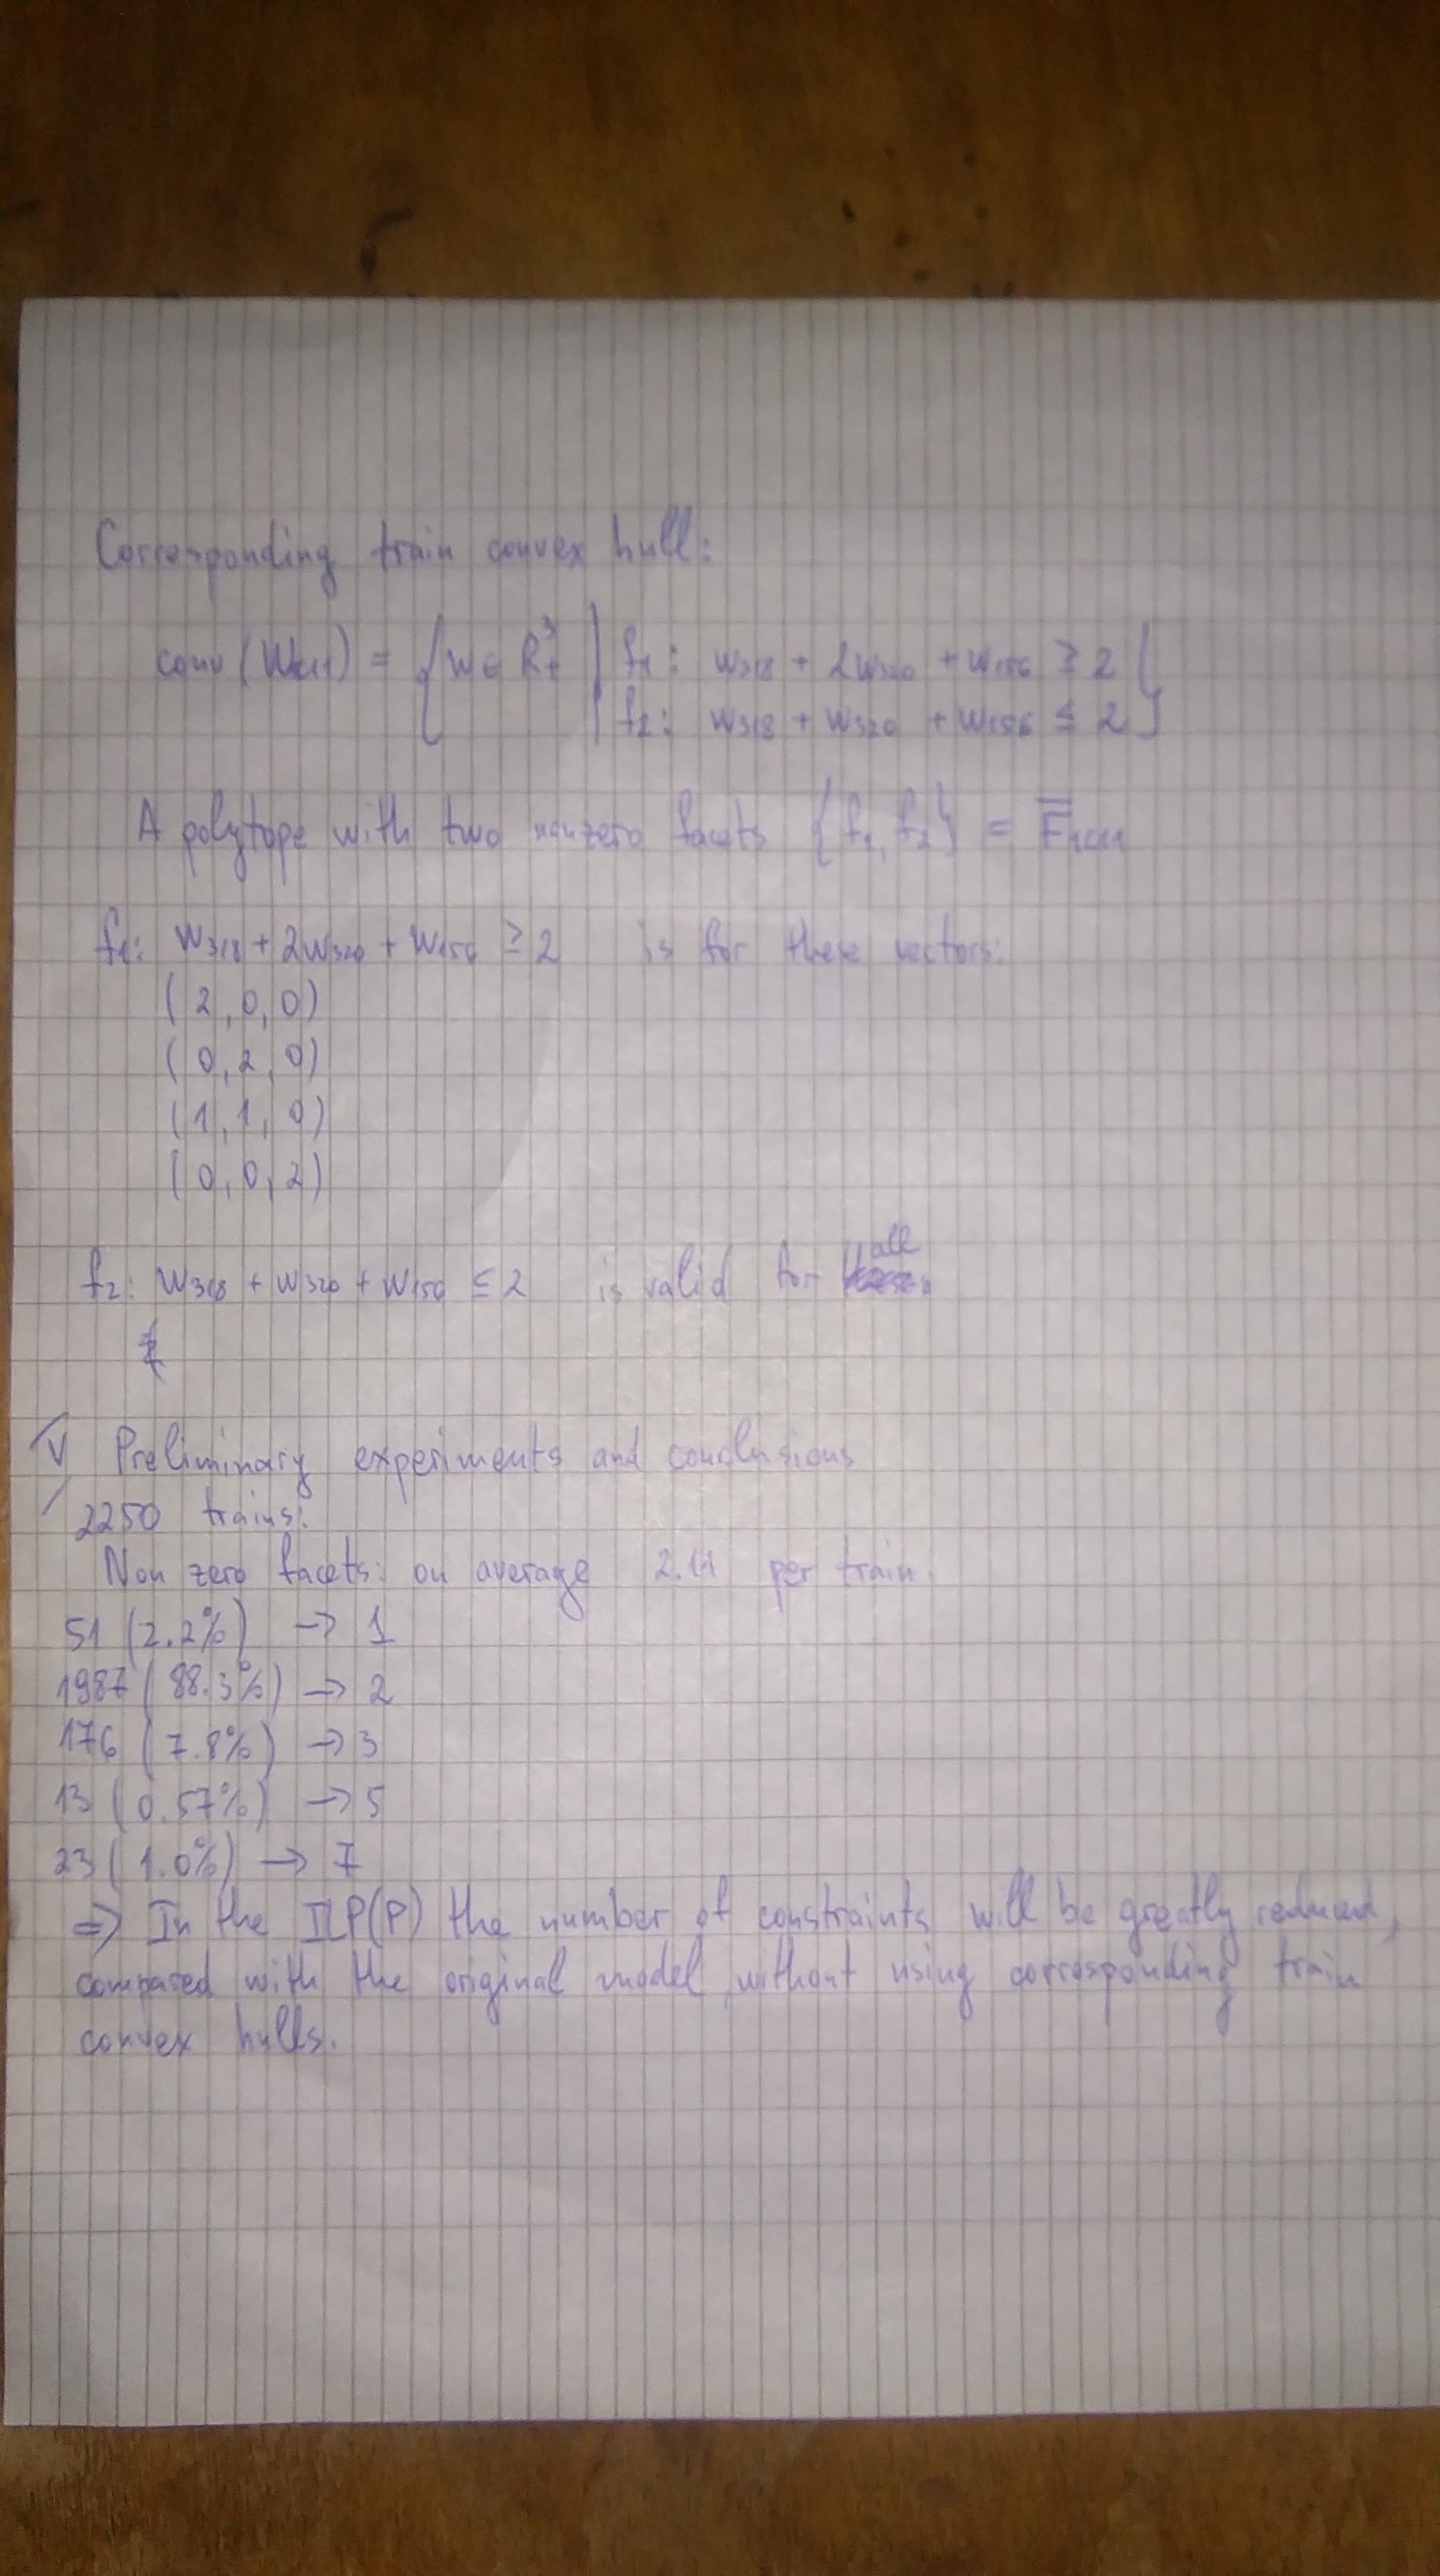 Corresponding train convex hull:
conv(W₁) = { w ∈ R³₊ | f₁: w₃₁₈ + 2w₃₂₀ + w₁₅₆ ≥ 2
f₂: w₃₁₈ + w₃₂₀ + w₁₅₆ ≤ 2 }
A polytope with two nonzero facets {f₁, f₂} =
f₁: w₃₁₈ + 2w₃₂₀ + w₁₅₆ ≥ 2 is for these vectors:
(2, 0, 0)
(0, 2, 0)
(1, 1, 0)
(0, 0, 2)
f₂: w₃₁₈ + w₃₂₀ + w₁₅₆ ≤ 2 is valid for all
V Preliminary experiments and conclusions
2250 trains:
Non zero facets: on average per train.
51 (2.2%) → 1
1987 (88.3%) → 2
176 (7.8%) → 3
13 (0.57%) → 5
23 (1.0%) → 7
⇒ In the ILP(P) the number of constraints will be greatly reduced,
compared with the original model, without using corresponding train
convex hulls.